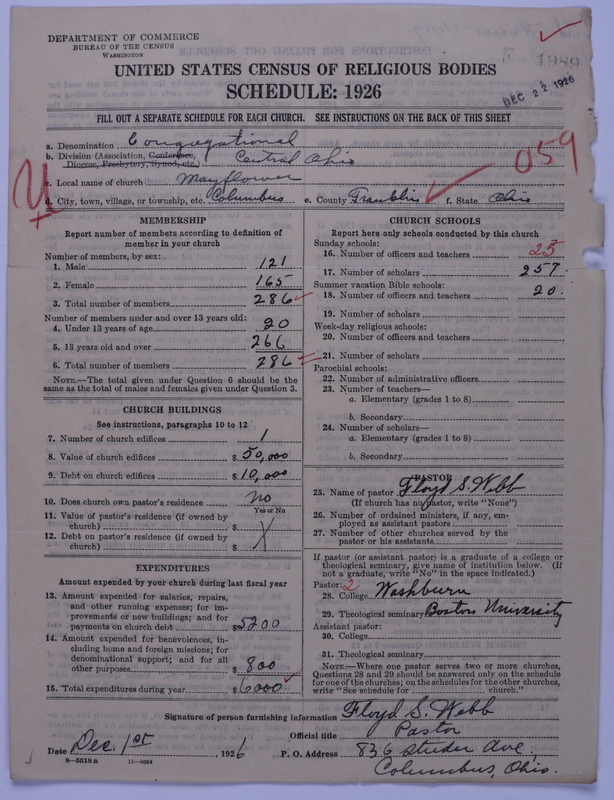 DEPARTMENT OF COMMERCE
BUREAU OF THE CENSUS
WASHINGTON
UNITED STATES CENSUS OF RELIGIOUS BODIES
SCHEDULE: 1926
DEC 22 1926
FILL OUT A SEPARATE SCHEDULE FOR EACH CHURCH. SEE INSTRUCTIONS ON THE BACK OF THIS SHEET
a. Denomination Congregational
b. Division (Association, Conference, Diocese, Presbytery, Synod, etc.) Central Ohio
059
c. Local name of church Mayflower
d. City, town, village, or township, etc. Columbus e. County Franklin f. State Ohio
MEMBERSHIP
Report number of members according to definition of
member in your church
Number of members, by sex:
1. Male 121
2. Female 165
3. Total number of members 286
Number of members under and over 13 years old:
4. Under 13 years of age 20
5. 13 years old and over 266
6. Total number of members 286
NOTE.—The total given under Question 6 should be
same as the total of males and females given under Question 3.
CHURCH BUILDINGS
See instructions, paragraphs 10 to 12
7. Number of church edifices 1
8. Value of church edifices $50,000
9. Debt on church edifices $10,000
10. Does church own pastor's residence No
Yes or No
11. Value of pastor's residence (if owned by
church) $
12. Debt on pastor's residence (if owned by
church) $
EXPENDITURES
Amount expended by your church during last fiscal year
13. Amount expended for salaries, repairs,
and other running expenses; for im-
provements or new buildings; and for
payments on church debt $5200
14. Amount expended for benevolences, in-
cluding home and foreign missions; for
denominational support; and for all
other purposes $800
15. Total expenditures during year $6000
CHURCH SCHOOLS
Report here only schools conducted by this church
Sunday schools:
16. Number of officers and teachers 23
17. Number of scholars 257
Summer vacation Bible schools:
18. Number of officers and teachers 20
19. Number of scholars
Week-day religious schools:
20. Number of officers and teachers
21. Number of scholars
Parochial schools:
22. Number of administrative officers
23. Number of teachers—
a. Elementary (grades 1 to 8)
b. Secondary
24. Number of scholars—
a. Elementary (grades 1 to 8)
b. Secondary
PASTOR
25. Name of pastor Floyd S. Webb
(If church has no pastor, write "None")
26. Number of ordained ministers, if any, em-
ployed as assistant pastors
27. Number of other churches served by the
pastor or his assistants
If pastor (or assistant pastor) is a graduate of a college or
theological seminary, give name of institution below. (If
not a graduate, write "No" in the space indicated.)
Pastor: 2
28. College Washburn
29. Theological seminary Boston University
Assistant pastor:
30. College
31. Theological seminary
NOTE.—Where one pastor serves two or more churches,
Questions 28 and 29 should be answered only on the schedule
for one of the churches; on the schedules for the other churches,
write "See schedule for church."
Signature of person furnishing information Floyd S. Webb
Official title Pastor
Date Dec. 1st 1926 P. O. Address 836 Studer Ave.,
Columbus, Ohio.
8—5518a 11—9064